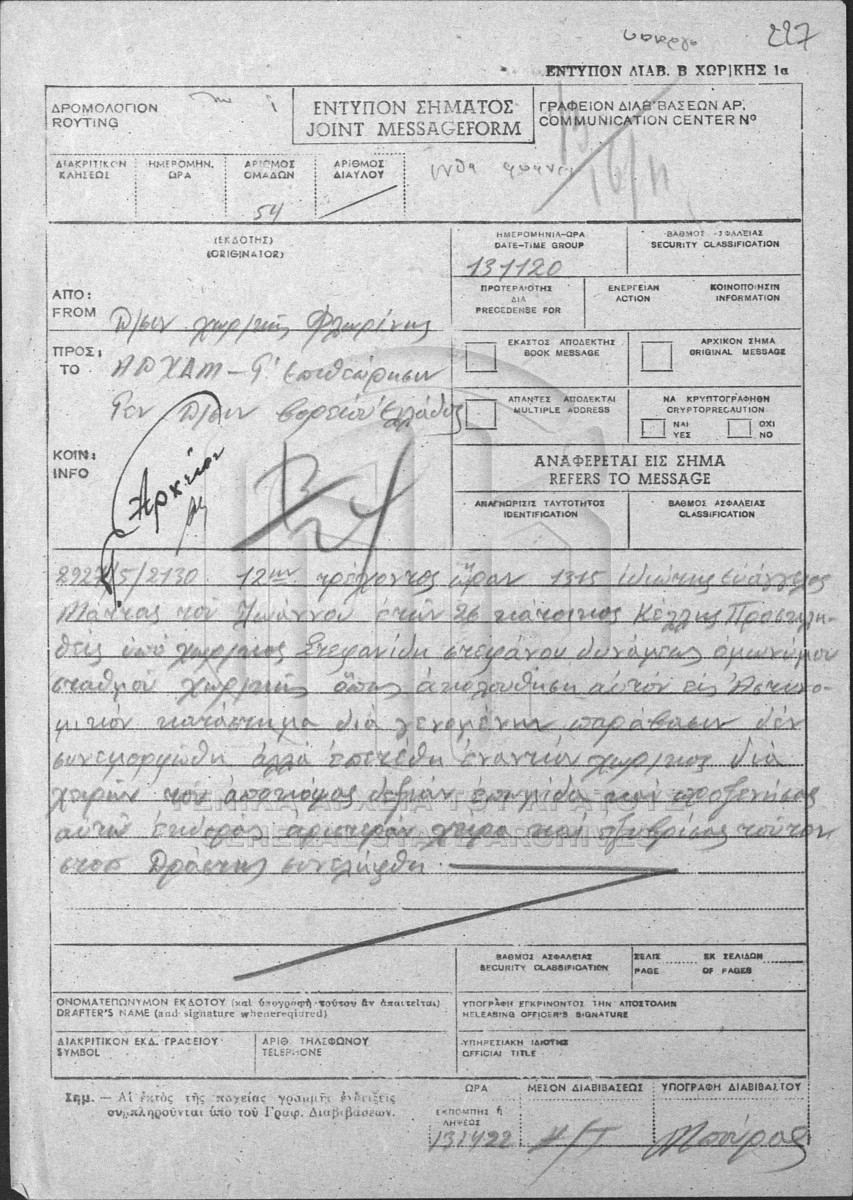 227
ΕΝΤΥΠΟΝ ΔΙΑΒ. Β ΧΩΡ)ΚΗΣ 1α
ΔΡΟΜΟΛΟΓΙΟΝ
ROUTING
ΕΝΤΥΠΟΝ ΣΗΜΑΤΟΣ
JOINT MESSAGEFORM
ΓΡΑΦΕΙΟΝ ΔΙΑΒΙΒΑΣΕΩΝ ΑΡ.
COMMUNICATION CENTER Nº
ΔΙΑΚΡΙΤΙΚΟΝ ΚΛΗΣΕΩΣ
ΗΜΕΡΟΜΗΝ. ΩΡΑ
ΑΡΙΘΜΟΣ ΟΜΑΔΩΝ
ΑΡΙΘΜΟΣ ΔΙΑΥΛΟΥ
54
16/11
(ΕΚΔΟΤΗΣ)
(ORIGINATOR)
ΗΜΕΡΟΜΗΝΙΑ-ΩΡΑ
DATE-TIME GROUP
131120
ΒΑΘΜΟΣ ΑΣΦΑΛΕΙΑΣ
SECURITY CLASSIFICATION
ΑΠΟ:
FROM
Δ/σιν χωρ/κής Φλωρίνης
ΠΡΟΤΕΡΑΙΟΤΗΣ
ΔΙΑ
PRECEDENSE FOR
ΕΝΕΡΓΕΙΑΝ
ACTION
ΚΟΙΝΟΠΟΙΗΣΙΝ
INFORMATION
ΠΡΟΣ:
TO
ΑΔΧΑΜ - Γ' Επιθεώρησιν
Γεν Δ/σιν βορείου Ελλάδος
ΕΚΑΣΤΟΣ ΑΠΟΔΕΚΤΗΣ
BOOK MESSAGE
ΑΡΧΙΚΟΝ ΣΗΜΑ
ORIGINAL MESSAGE
ΑΠΑΝΤΕΣ ΑΠΟΔΕΚΤΑΙ
MULTIPLE ADDRESS
ΝΑ ΚΡΥΠΤΟΓΡΑΦΗΘΗ
CRYPTOPRECAUTION
ΝΑΙ
YES
ΟΧΙ
NO
ΚΟΙΝ:
INFO
Αρχείον
ΑΝΑΦΕΡΕΤΑΙ ΕΙΣ ΣΗΜΑ
REFERS TO MESSAGE
ΑΝΑΓΝΩΡΙΣΙΣ ΤΑΥΤΟΤΗΤΟΣ
IDENTIFICATION
ΒΑΘΜΟΣ ΑΣΦΑΛΕΙΑΣ
CLASSIFICATION
2927/5/2130 12ην τρέχοντος ὥραν 1315 ἰδιώτης Εὐάγγελος
τοῦ Ἰωάννου ἐτῶν 26 κάτοικος Κέλλης Προσκλη-
θείς ὑπό χωρ/κος Στεφανίδη στεφάνου δυνάμεως ὁμωνύμου
σταθμοῦ χωρ/κῆς ὅπως ἀκολουθήση αὐτόν εἰς Ἀστυνο-
μικόν κατάστημα διά γενομένην παράβασιν δέν
συνεμορφώθη ἀλλά ἐπετέθη ἐναντίον χωρ/κος διά
χειρῶν τοῦ ἀποκόψας δεξιάν ἐπωμίδα καί προξενήσας
αὐτῷ ἐκδοράς ἀριστεράν χεῖρα καί ἐξυβρίσας τοῦτον
στοπ Δράστης συνελήφθη.
ΓΕΝΙΚΑ ΑΡΧΕΙΑ ΤΟΥ ΚΡΑΤΟΥΣ
GENERAL STATE ARCHIVES
ΒΑΘΜΟΣ ΑΣΦΑΛΕΙΑΣ
SECURITY CLASSIFICATION
ΣΕΛΙΣ
PAGE
ΕΚ ΣΕΛΙΔΩΝ
OF PAGES
ΟΝΟΜΑΤΕΠΩΝΥΜΟΝ ΕΚΔΟΤΟΥ (καὶ ὑπογραφὴ τούτου ἂν ἀπαιτεῖται)
DRAFTER'S NAME (and signature whenereqired)
ΥΠΟΓΡΑΦΗ ΕΓΚΡΙΝΟΝΤΟΣ ΤΗΝ ΑΠΟΣΤΟΛΗΝ
RELEASING OFFICER'S SIGNATURE
ΔΙΑΚΡΙΤΙΚΟΝ ΕΚΔ. ΓΡΑΦΕΙΟΥ
SYMBOL
ΑΡΙΘ. ΤΗΛΕΦΩΝΟΥ
TELEPHONE
ΥΠΗΡΕΣΙΑΚΗ ΙΔΙΟΤΗΣ
OFFICIAL TITLE
Σημ. — Αἱ ἐκτὸς τῆς παχείας γραμμῆς ἐνδείξεις
συμπληροῦνται ὑπὸ τοῦ Γραφ. Διαβιβάσεων.
ΩΡΑ
ΕΚΠΟΜΠΗΣ ἤ
ΛΗΨΕΩΣ
131422
ΜΕΣΟΝ ΔΙΑΒΙΒΑΣΕΩΣ
Η/Τ
ΥΠΟΓΡΑΦΗ ΔΙΑΒΙΒΑΣΤΟΥ
Μπούρας